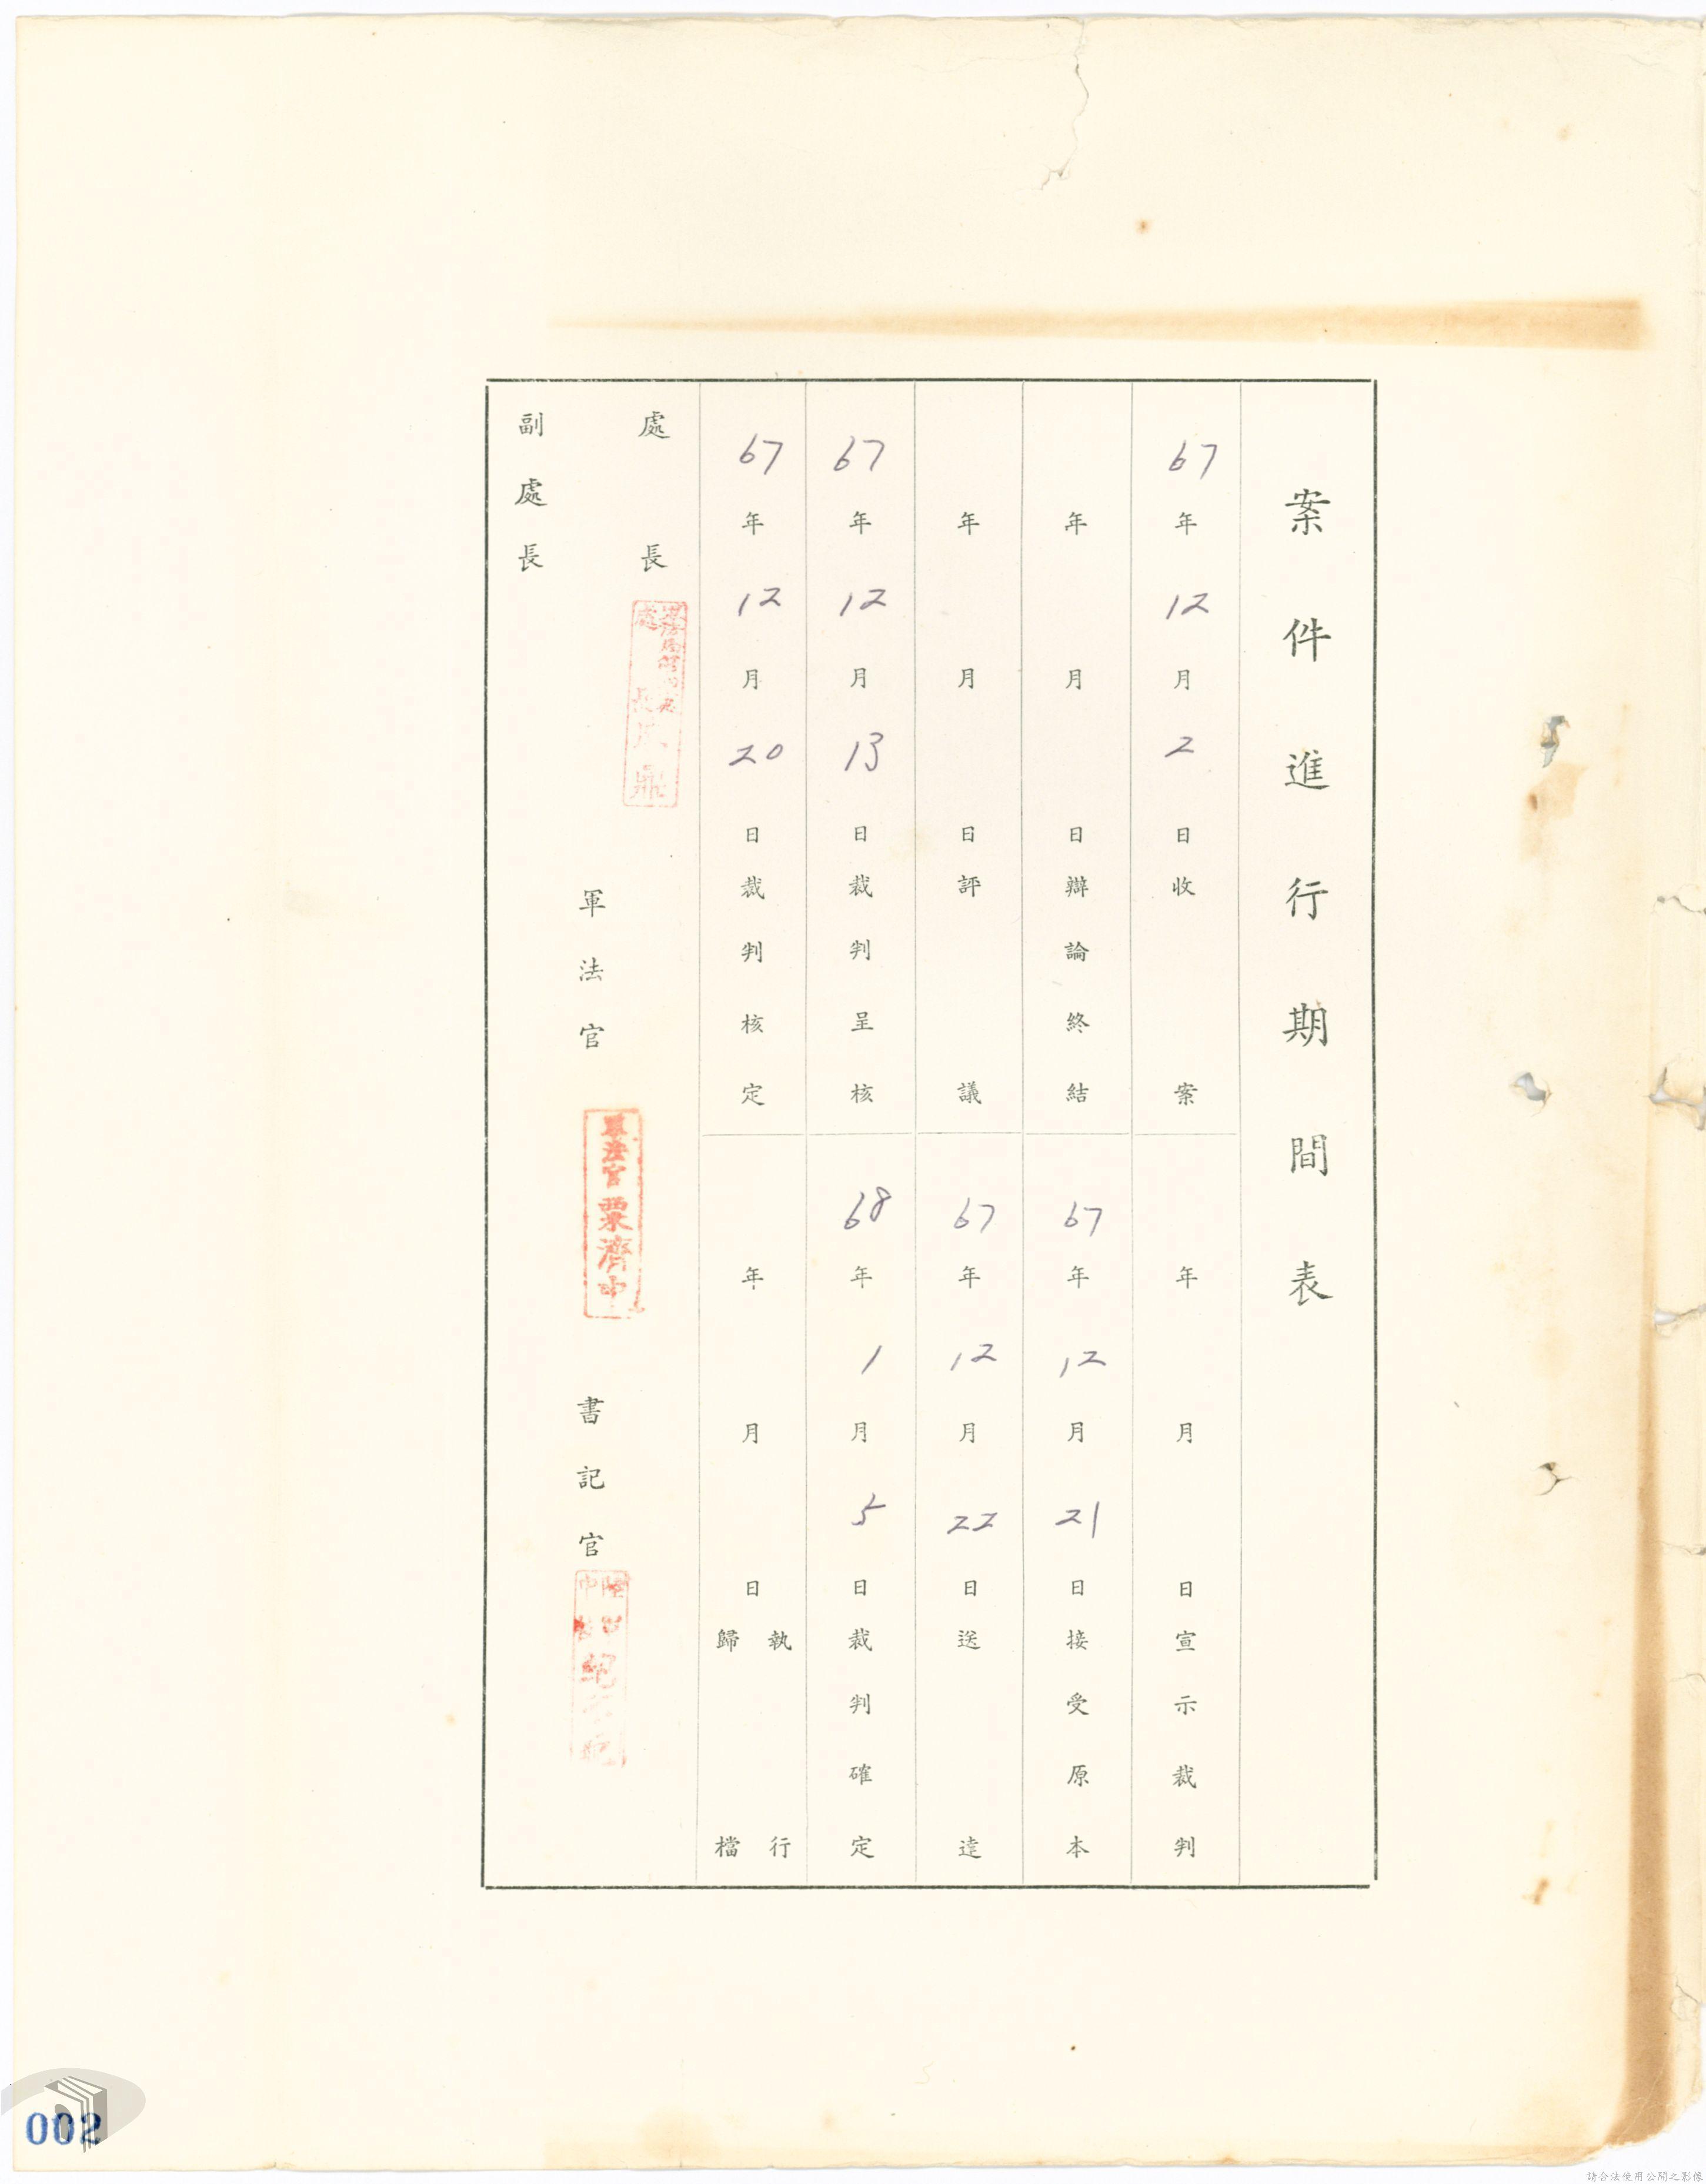 案件進行期間表
67年12月2日收案
年月日宣示裁判
年月日辯論終結
67年12月21日接受原本
年月日評議
67年12月22日送達
67年12月13日裁判呈核
68年1月5日裁判確定
67年12月20日裁判核定
年月日執行
歸檔
處長
副處長
軍法官
軍法官粟濟中
書記官
002
請合法使用公開之影像